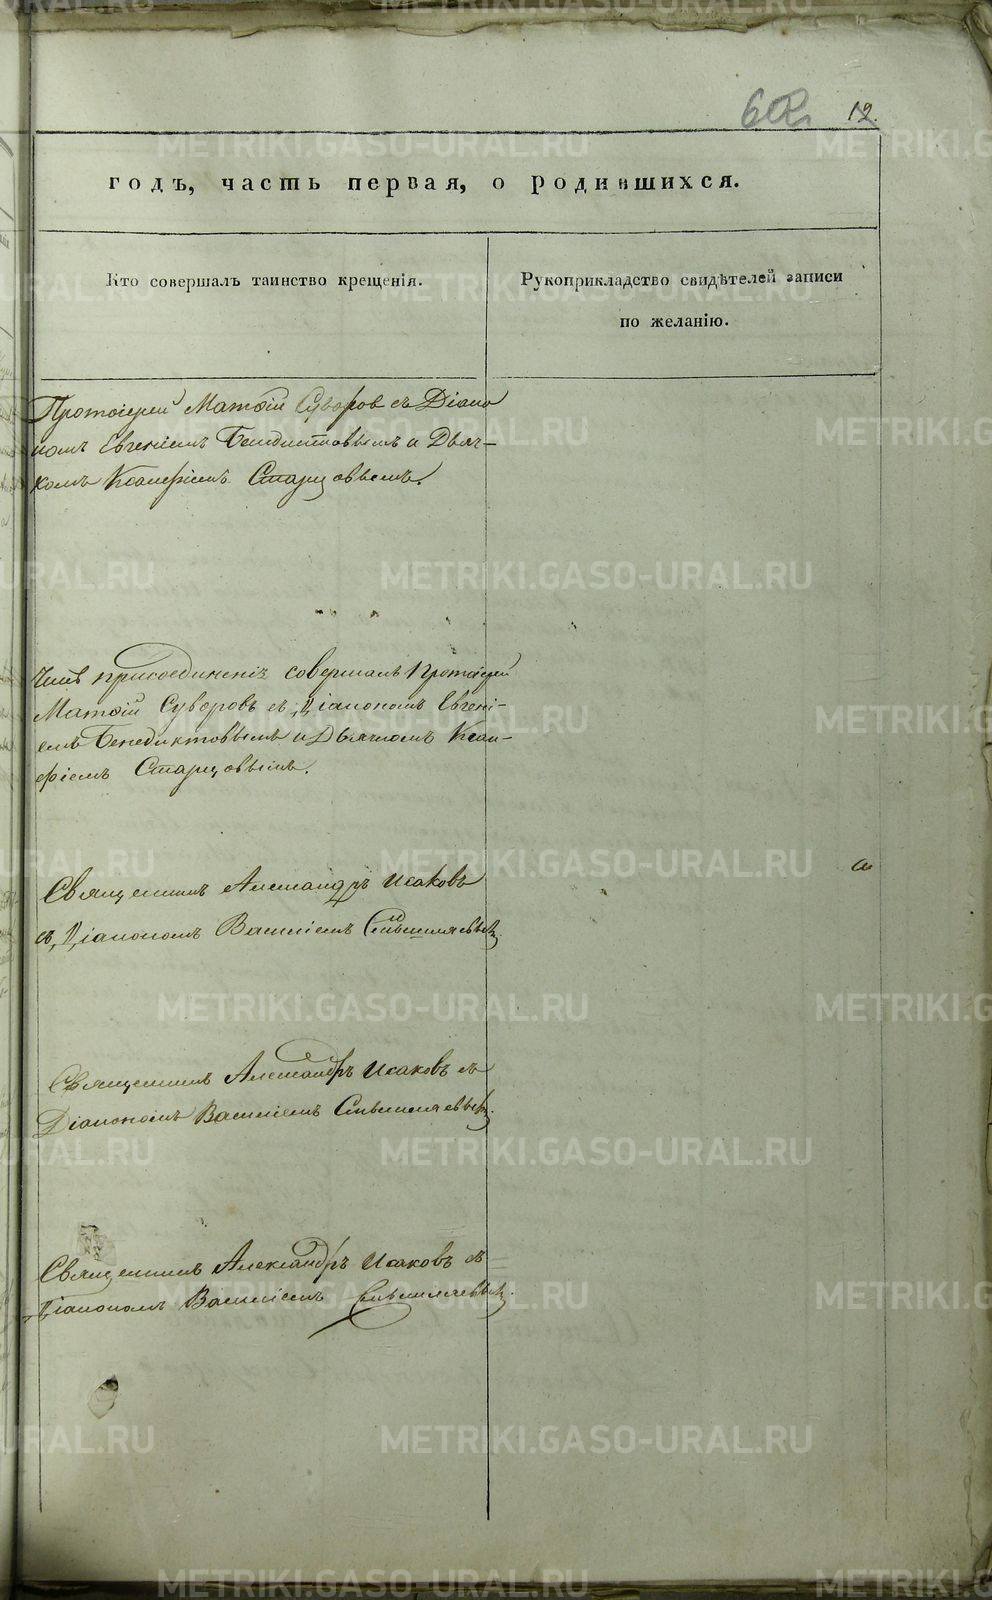 12.
годъ, часть первая, о родившихся.
Кто совершалъ таинство крещенія.
Рукоприкладство свидѣтелей записи
по желанію.
Протоіерей Матѳій Суворов съ Діако
номъ Евгеніемъ Бенедиктовымъ и Дьяч-
комъ Ксанфіемъ Старцовымъ.
Чинъ присоединенія совершалъ Протоіерей
Матѳій Суворовъ съ Діакономъ Евгені-
емъ Бенедиктовымъ и Дьячкомъ Ксан-
фіемъ Старцовымъ.
Священникъ Александръ Исаковъ
съ Діакономъ Василіемъ
Священникъ Александръ Исаковъ съ
Діакономъ Василіемъ
Священникъ Александръ Исаковъ съ
Діакономъ Василіемъ
METRIKI.GASO-URAL.RU